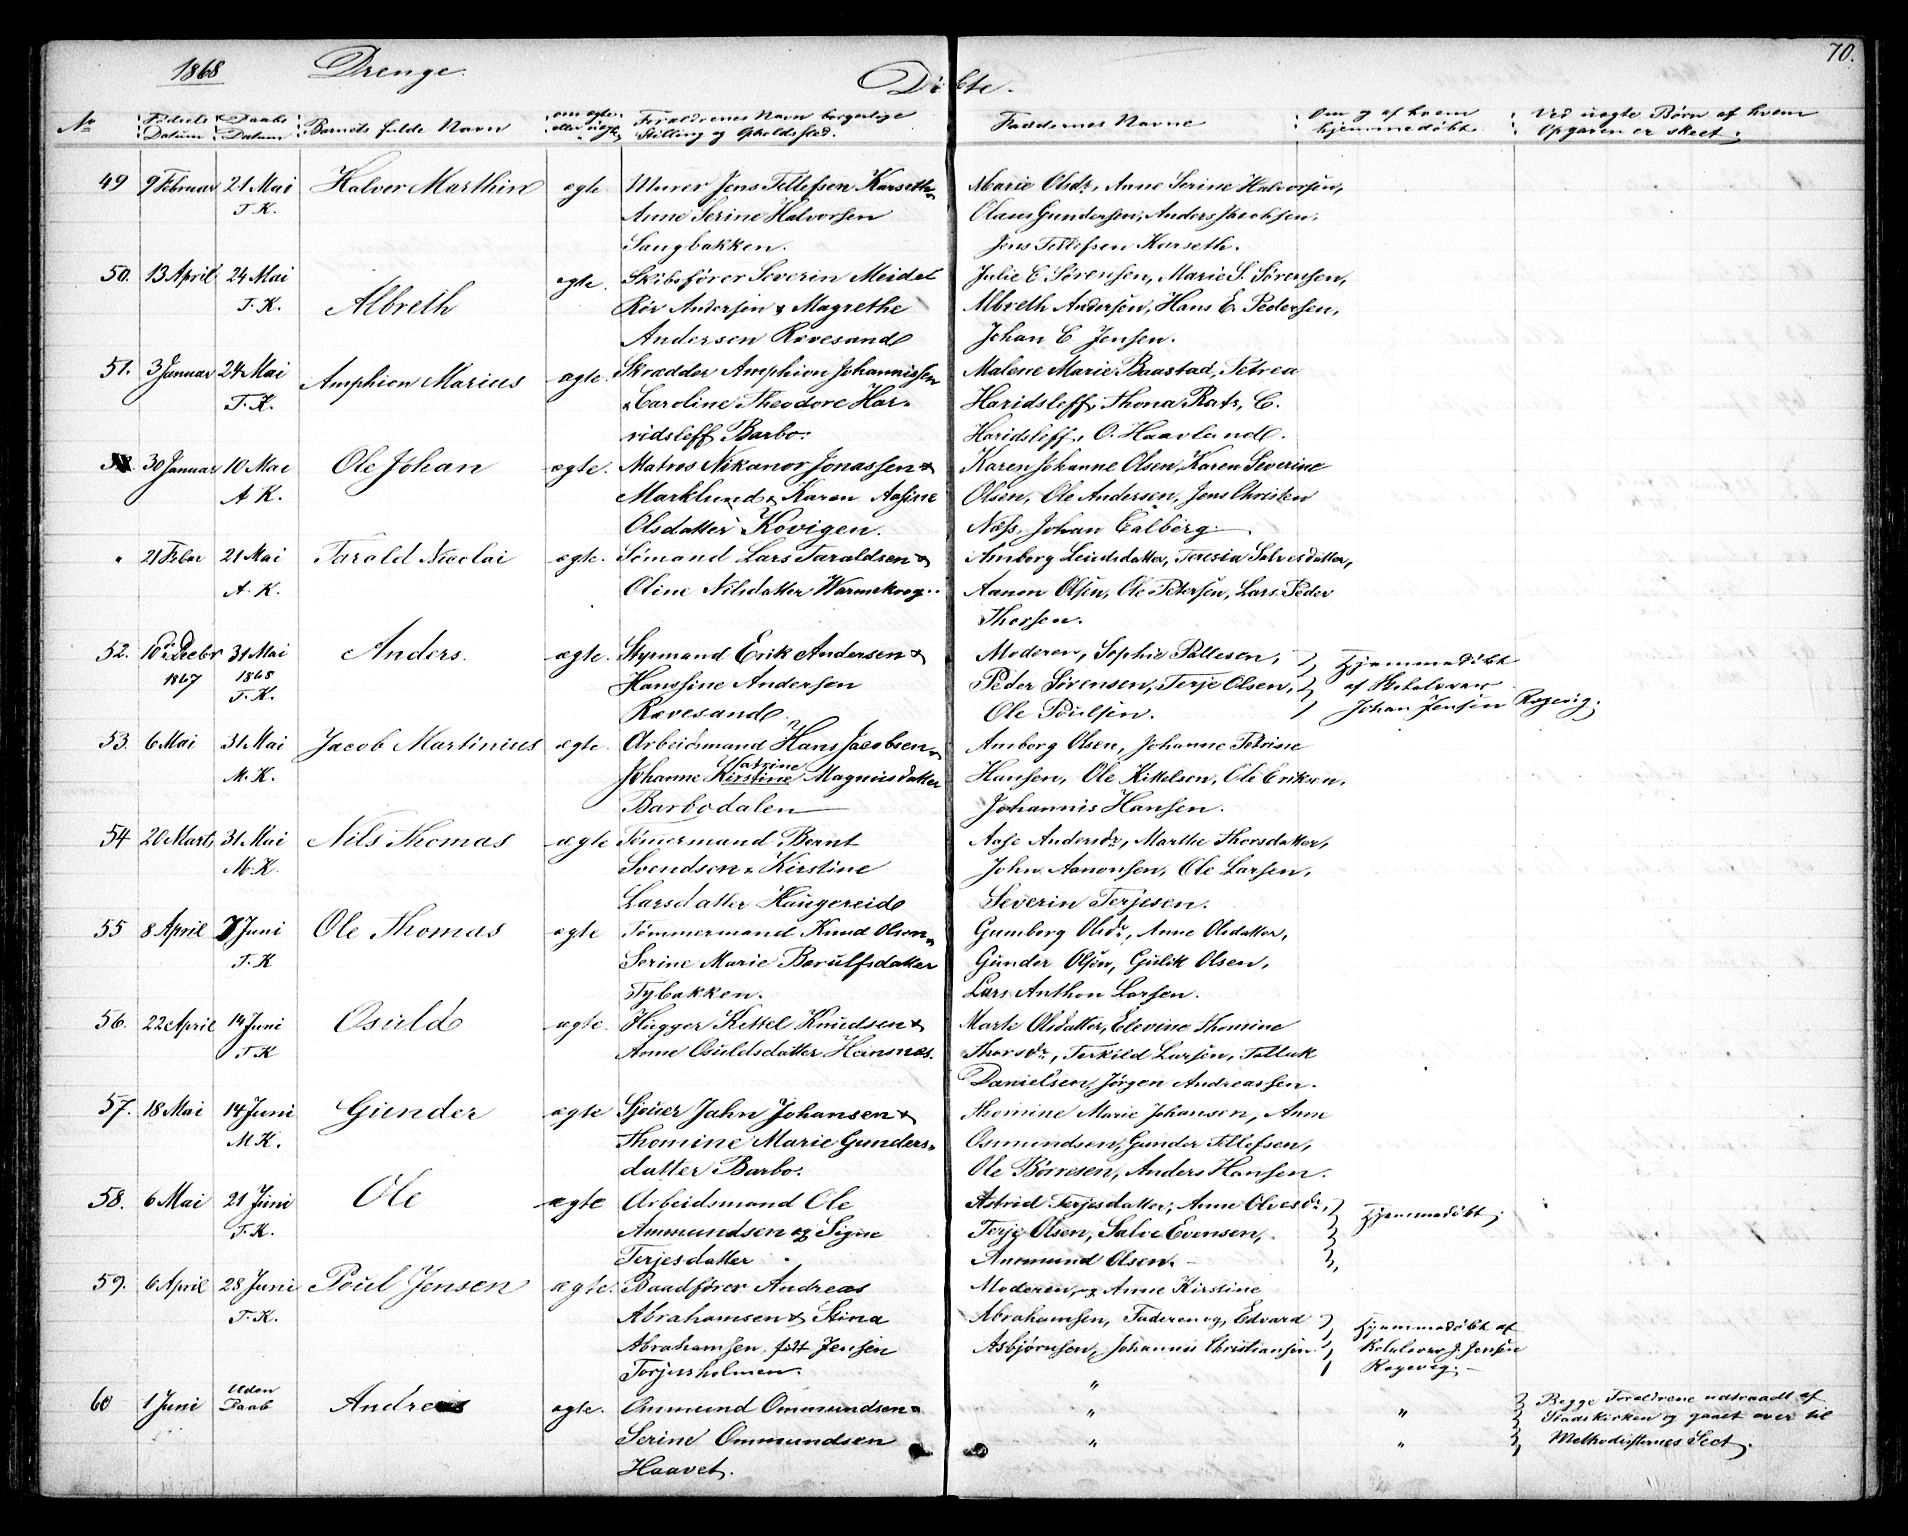 1868 Drenge. Döbte. 70.
No Födsels Datum Daabs Datum Barnets fulde Navn om ægte eller uægte Forældrenes Navn borgerlige Stilling og Opholdssted. Faddernes Navne Om og af hvem hjemmedöbt Ved uægte Börn af hvem Opgaven er skeet;
49 9 Februar 21 Mai Halver Marthin ægte. Murer Jens Tellefsen Karseth & Marie Olsdr, Anne Serine Halvorsen,
T. K. Anne Serine Halvorsen Olaus Gundersen, Anders Jacobsen,
Sangbakken. Jens Tellefsen Karseth.
50. 13 April 24 Mai ægte. Skibsförer Severin Meidel Julie C Sörensen, Marie S. Sörensen,
T. K. Albreth Rör Andersen & Magrethe Albreth Andersen, Hans E. Pedersen,
Andersen Revesand Johan C Jensen.
51. 3 Januar 24 Mai Amphion Marius ægte. Skrædder Amphion Johannissen Malene Marie Baastad, Petrea
T. K. & Caroline Theodore Har- Haridsleff, Thona Ratz, C.
ridsleff Barbo. Haridsleff, O. Haavland.
30 Januar 10 Mai Ole Johan ægte. Matros Nikanor Jonassen & Karen Johanne Olsen, Karen Severine
A K. Marklund & Karen Aasine Olsen, Ole Andersen, Jens Christen
Olsdatter Kovigen. Næss, Johan Calberg.
" 21 Febr 21 Mai Tarald Nicolai ægte. Sömand Lars Taraldsen & Amborg Leiedsdatter, Teresia Salvesdatter,
A. K. Oline Nilsdatter Warmekrog. Aanon Olsen, Ole Petersen, Lars Peder
Thorsen.
52. 10de Decbr 31 Mai Anders. ægte. Styrmand Erik Andersen & Moderen, Sophie Pallesen, Hjemmedöbt
1867 1868 Hanssine Andersen Peder Sörensen, Terje Olsen, af
T. K. Rævesand. Ole Poulsen. Johan Jensen Rægevig.
53. 6 Mai 31 Mai Jacob Martinius ægte. Arbeidsmand Hans Jacobsen & Amborg Olsen, Johanne Petrine
M. K. Johanne Kirstine Katrine Magnusdatter Hansen, Ole Kittelsen, Ole Eriksen,
Barbodalen Johannis Hansen.
54 20 Marts 31 Mai Nils Thomas ægte Tömermand Bernt Aase Andersdr, Marthe Thorsdatter,
M. K. Svendsen & Kirstine John Aanonsen, Ole Larsen,
Larsdatter Haugereid Severin Terjesen.
55 8 April 7 Juni Ole Thomas ægte Tömmermand Knud Olsen & Gumborg Olsdr, Anne Olsdatter,
T. K Serine Marie Berulfsdatter Gunder Olsen, Gulik Olsen,
Tybakken. Lars Anthon Larsen.
56. 22 April 14 Juni Osuld ægte. Hugger Kittel Knudsen & Marte Olsdatter, Elevine Thomine
T K Anne Osuldsdatter Heisnes. Thorsdr, Terkild Larsen, Tallak
Danielsen, Jörgen Andreassen.
57. 18 Mai 14 Juni Gunder ægte Sjouer Jahn Johansen & Thomine Marie Johansen, Anne
M K. Thomine Marie Gunders- Osmundsen, Gunder Tellefsen,
datter Barbo. Ole Börresen, Anders Hansen.
58. 6 Mai 21 Juni Ole ægte Arbeidsmand Ole Astrid Terjesdatter, Anne Olvesdr, Hjemmedöbt;
T. K. Ammundsen og Signe Terje Olsen, Salve Evensen,
Terjesdatter Ammund Olsen.
59. 6 April 28 Juni Poul Jensen ægte. Baadförer Andreas Moderen, og Anne Kirstine
T. K. Abrahamsen & Stina Abrahamsen, Faderen og, Edvard Hjemmedöbt af
Abrahamsen födt Jensen Asbjörnsen, Johannis Christiansen J. Jensen
Torjusholmen. " Rægevig.
60 1 Juni Uden Daab Andreas ægte. Ommund Ommundsen & " " Begge Forældrene udtraadt af
Serine Ommundsen " " Stadskirken og gaaet over til
Haavet. Methodisternes Sect.